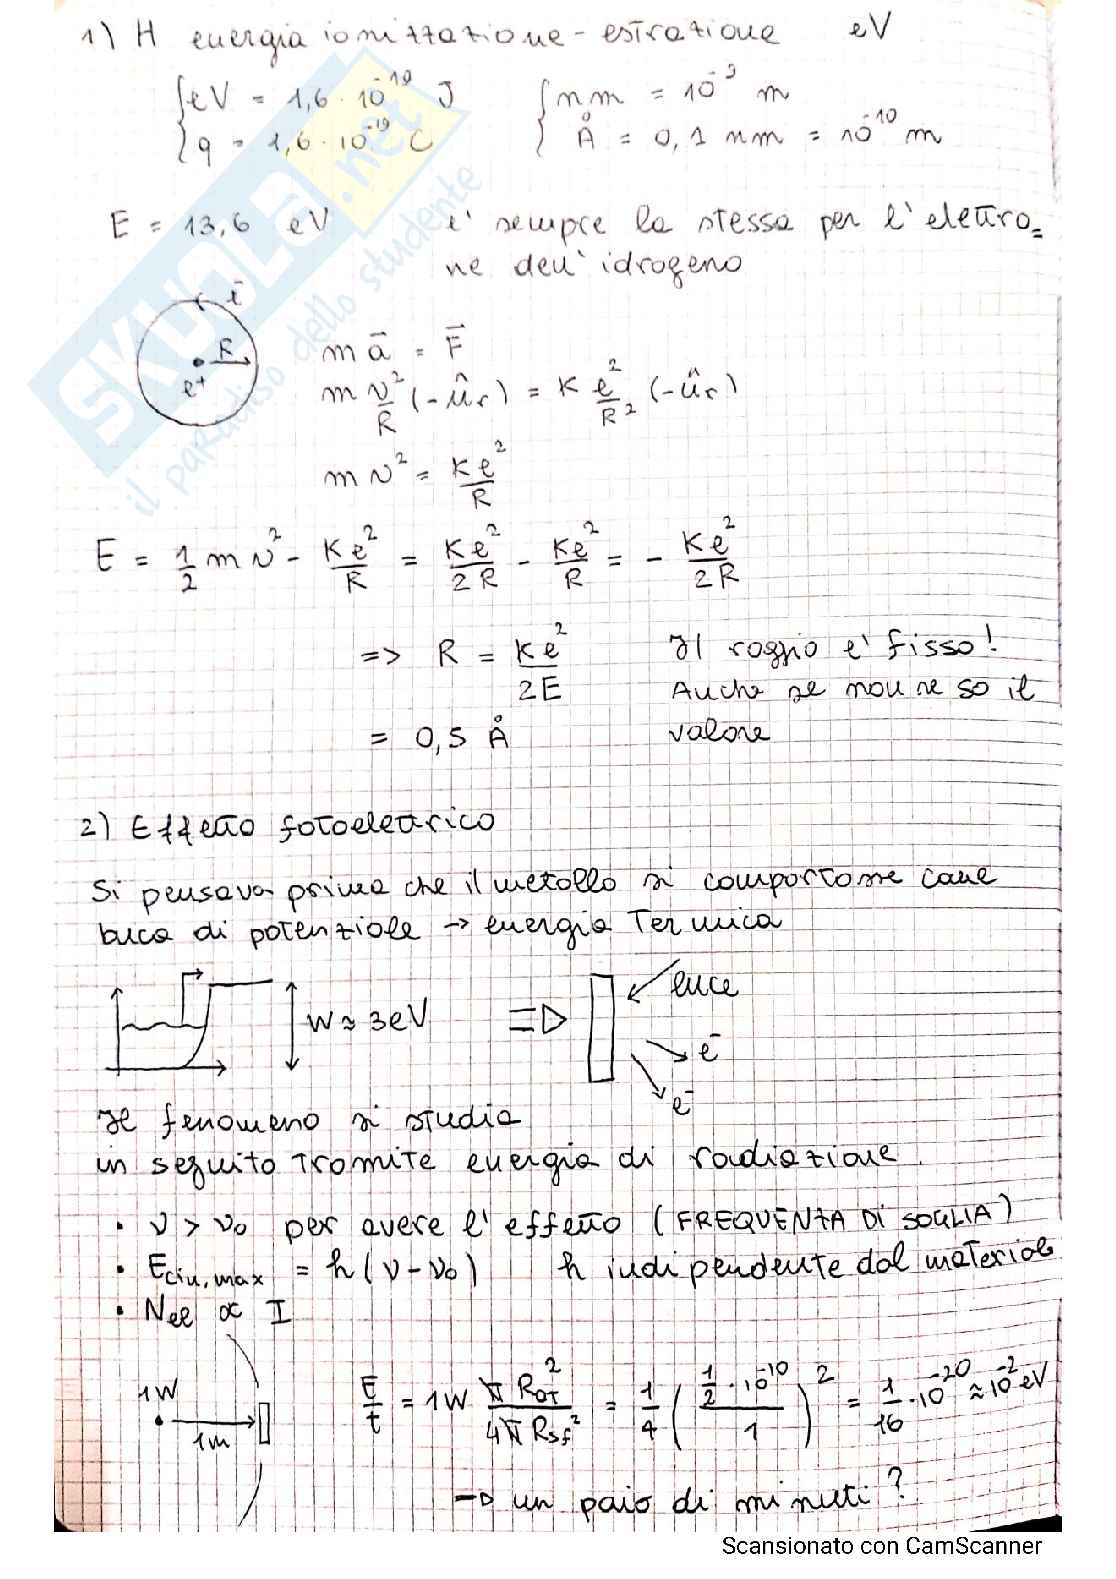 1) H energia ionizzazione - estrazione eV
{ eV = 1,6 · 10^-19 J { nm = 10^-9 m
{ q = 1,6 · 10^-19 C { Å = 0,1 nm = 10^-10 m
E = 13,6 eV e' sempre la stessa per l'elettro=
ne dell'idrogeno
e-
R
e+
m a⃗ = F⃗
m v²/R (-û_r) = K e²/R² (-û_r)
m v² = Ke²/R
E = 1/2 m v² - Ke²/R = Ke²/2R - Ke²/R = - Ke²/2R
=> R = Ke²/2E Il raggio e' fisso!
Anche se non ne so il
= 0,5 Å valore
2) Effetto fotoelettrico
Si pensava prima che il metallo si comportasse come
buca di potenziale → energia termica
W ≈ 3eV ⇒ luce
e-
e-
Il fenomeno si studia
in seguito tramite energia di radiazione
· ν > ν₀ per avere l'effetto (FREQUENZA DI SOGLIA)
· E_cin,max = h(ν-ν₀) h indipendente dal materiale
· N_el ∝ I
1W
1m
E/t = 1W π R_at²/4π R_sf² = 1/4 (1/2 · 10^-10/1)² = 1/16 · 10^-20 ≈ 10^-2 eV
→ un paio di minuti?
SKUOLA.net
il paradiso dello studente
Scansionato con CamScanner